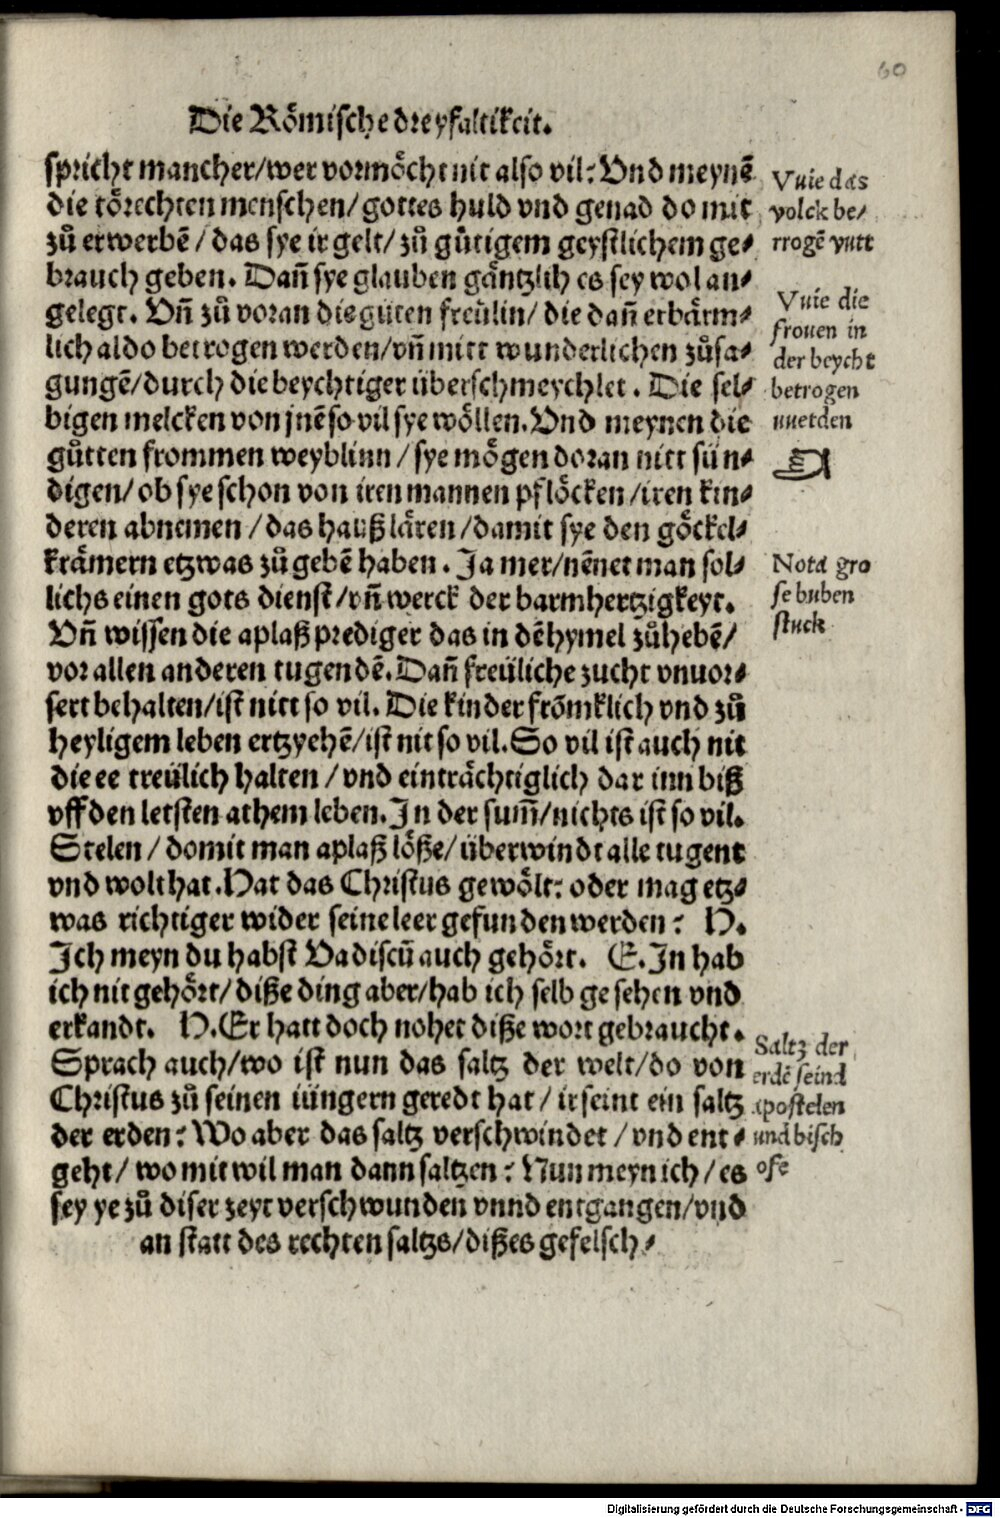 60
Die Rômische dreyfaltikeit.
spricht mancher/wer vormôcht nit also vil? Vnd meynẽ
die tôrechten menschen/ gottes huld vnd genad do mit
zů erwerbẽ / das sye ir gelt/ zů gůtigem geystlichem ge⸗
brauch geben. Dañ sye glauben gäntzlih es sey wol an⸗
gelegt. Vñ zů voran die gůten freülin/ die dañ erbärm⸗
lich aldo betrogen werden/vñ mitt wunderlichen zůsa⸗
gungẽ/durch die beychtiger überschmeychlet. Die sel⸗
bigen melcken von jnẽ so vil sye wôllen. Vnd meynen die
gůtten frommen weyblinn / sye môgen doran nitt sün⸗
digen/ ob sye schon von iren mannen pflôcken /iren kin⸗
deren abnemen /das hauß lären /damit sye den gôckel⸗
krämern etzwas zů gebẽ haben. Ja mer/nẽnet man sol⸗
lichs einen gots dienst/vñ werck der barmhertzigkeyt.
Vñ wissen die aplaß prediger das in dẽ hymel zůhebẽ/
vor allen anderen tugendẽ. Dañ freüliche zucht vnuor⸗
sert behalten/ist nitt so vil. Die kinder frômklich vnd zů
heyligem leben ertzyehẽ/ist nit so vil. So vil ist auch nit
die ee treülich halten / vnd einträchtiglich dar inn biß
vff den letsten athem leben. In der sum̃/nichts ist so vil.
Stelen / domit man aplaß lôße/ überwindt alle tugent
vnd wolthat. Hat das Christus gewôlt? oder mag etz⸗
was richtiger wider seine leer gefunden werden? H.
Ich meyn du habst Vadiscũ auch gehôrt. E. In hab
ich nit gehôrt/ diße ding aber/hab ich selb gesehen vnd
erkandt. H. Er hatt doch nohet diße wort gebraucht.
Sprach auch/wo ist nun das saltz der welt/do von
Christus zů seinen iüngern geredt hat / ir seint ein saltz
der erden? Wo aber das saltz verschwindet /vnd ent⸗
geht/ wo mit wil man dann saltzen? Nun meyn ich/ es
sey ye zů diser zeyt verschwunden vnnd entgangen/vnd
an statt des rechten saltzs/dißes gefelsch⸗
Vuie das
volck be/
trogẽ vutt
Vuie die
frouen in
der beycht
betrogen
uuerden
Nota gro
se buben
stuck
Saltz der
erdẽ seind
apostelen
und bisch
ofe
Digitalisierung gefördert durch die Deutsche Forschungsgemeinschaft - DFG